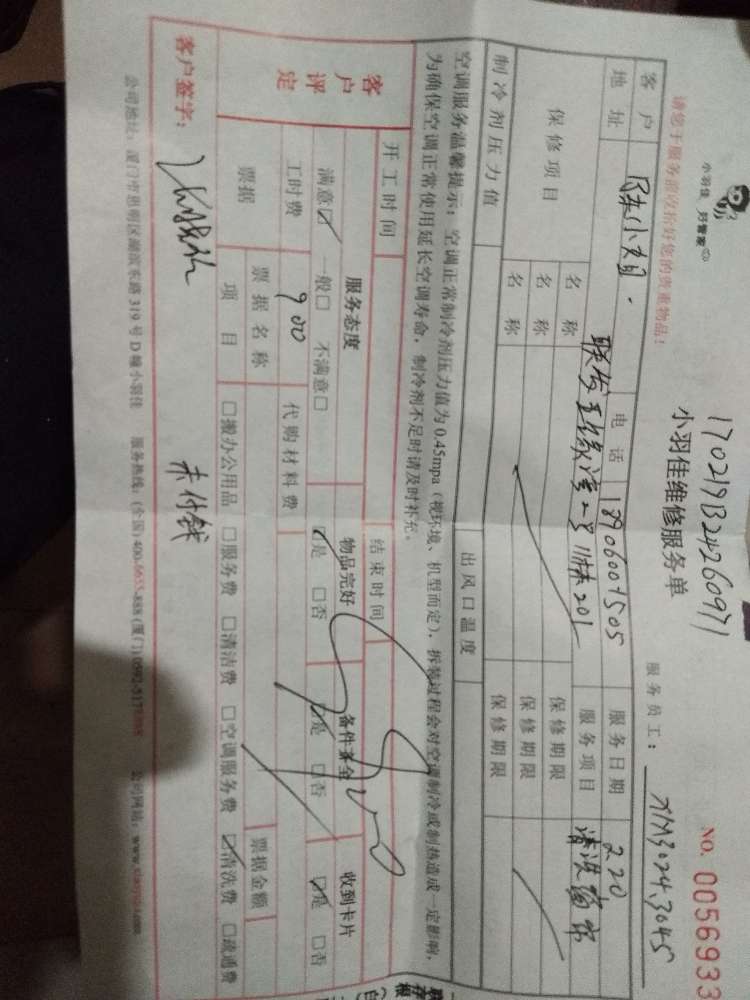 小羽佳 好管家
17021913242260971
NO. 0056933
小羽佳维修服务单
请您于服务前收拾好您的贵重物品!
服务员工: XM3024.3045
客户 陈小姐 电话 18906007505 服务日期 2.20
地址 联发五缘湾2号 201 服务项目 清洗
保修项目 名称 保修期限
名称 保修期限
名称 保修期限
制冷剂压力值 出风口温度
空调服务温馨提示:空调正常制冷剂压力值为0.45mpa(视环境、机型而定),拆装过程会对空调制冷或制热造成一定影响,
为确保空调正常使用延长空调寿命,制冷剂不足时请及时补充。
开工时间 结束时间
客户评定 服务态度 物品完好 备件齐全 收到卡片
满意☑ 一般□ 不满意□ ☑是 □否 ☑是 □否 ☑是 □否
工时费 900 代购材料费
票据 票据名称 票据金额
项目 □搬办公用品 □服务费 □清洁费 □空调服务费 ☑清洗费 □疏通费
客户签字: 未付钱
公司地址:厦门市思明区湖滨东路319号D幢小羽佳 服务热线:(全国)400-6655-888 (厦门)0592-517 公司网站:www.xiaoyujia.com